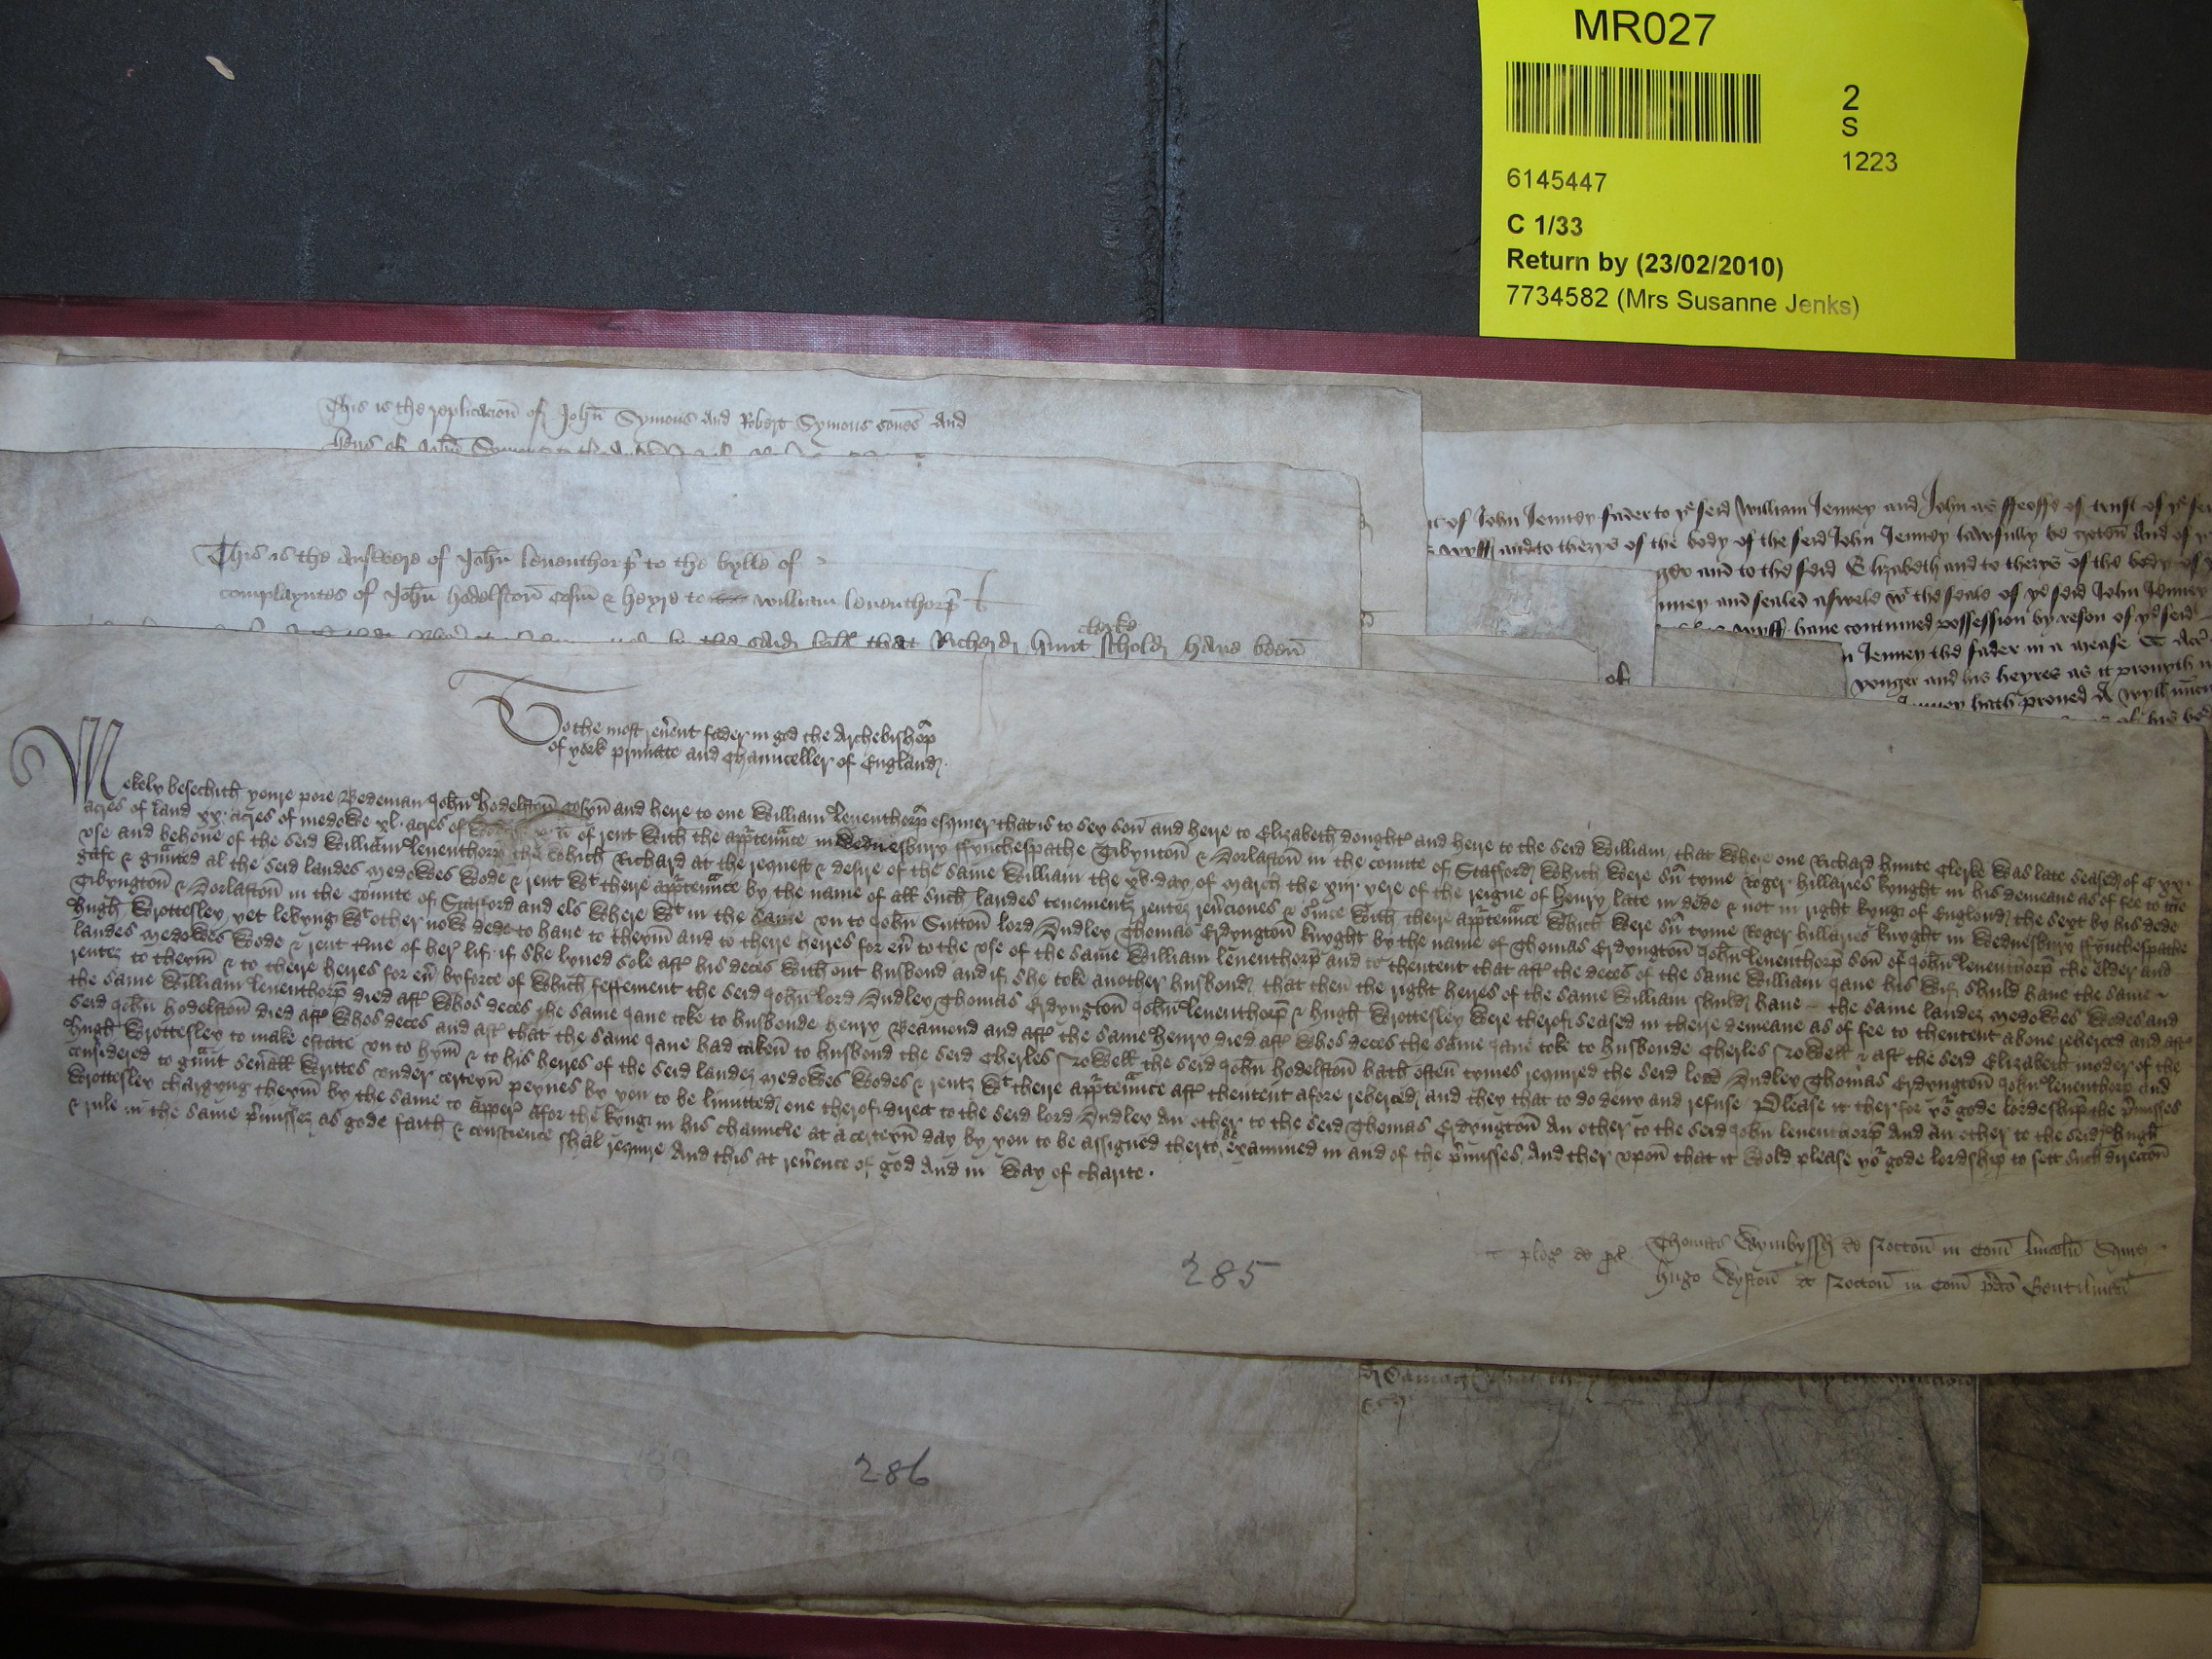 MR027
2
S
1223
6145447
C 1/33
Return by (23/02/2010)
7734582 (Mrs Susanne Jenks)
This is the replicacion of John Symons and Robert Symons sones and
This is the Answere of John leuenthorp to the bylle of
complayntes of John hodelston cosin & heyre to william leuenthorp
the said bill that Richard hunt clerke shold have been
of John Jenney fader to ye seid William Jenney and John as ffeoffe of trust of ye
wyff and to theyrs of the body of the seid John Jenney lawfully be goten And of
and to the seid Elizabeth and to theyrs of the body of
nney and sealed aswele wt the seale of ye seid John Jenney
wyff have contynued possession by reson of ye seid
Jenney the fader in a mease
yonger and his heyres as it provyth
hath proved A wyll
To the most reuent fader in god the Archebishop
of york primate and Chaunceller of England
Mekely besechith youre pore Bedeman John Hodelston cosyn and heire to one William Leuenthorp esquier that is to sey son and heire to Elizabeth doughter and heire to the seid William, that where one Richard hunte Clerke was late seased of Cxx
acres of land xx acres of medowe xl acres of of rent with the apptenance in Wednesbury ffynchespathe Tibynton & Dorlaston in the comite of Stafford which were sum tyme Roger hillaries knyght in his demeane as of fee to the
vse and behoue of the seid William Leuenthorp the which Richard at the request & desire of the same William the xv day of March the xiij yere of the reigne of Henry late in dede & not in right kyng of England the sext by his dede
gafe & graunted al the seid landes medowes wode & rent wt there apptenance by the name of all such landes tenementz rentez reuersiones & seruice with there apptenance which were sum tyme Roger hillaries knyght in Wednesbury ffynchespathe
Tibyngton & Dorlaston in the Counte of Stafford and els where wt in the same vn to John Sutton lord Dudley Thomas Erdyngton knyght by the name of Thomas Erdyngton John Leuenthorp son of John Leuenthorp the elder and
Hugh Wrottesley, yet levyng wt other now dede to haue to theym and to theire heyres for eu to the vse of the same William Leuenthorp and to thentent that aft the deces of the same William Jane his wif shuld haue the same
landes medowes wode & rent time of her lif if she lyued sole aft his deces with out husbond and if she toke another husbond that then the right heyres of the same William shuld haue the same landez medowes wodes and
rentez to theym & to theire heyres for eu by force of which feffement the seid John lord Dudley Thomas Erdyngton John Leuenthorp & Hugh Wrottesley were therof seased in theire demeane as of fee to thentent aboue reherced and aft
the same William Leuenthorp died aft whos deces the same Jane toke to husbonde Henry Beamond and aft the same Henry died aft whos deces the same Jane toke to husbonde Cherles Nowell & aft the seid Elizabeth moder of the
seid John Hodelston died aft whos deces and aft that the same Jane had taken to husbond the seid Cherles Nowell the seid John hodelston hath often tymes required the seid lord Dudley Thomas Erdyngton John Leuenthorp and
Hugh Wrottesley to make estate vn to hym & to his heyres of the seid landez medowes wodes & rentz wt there apptenance aft thentent afore reherced and they that to do deny and refuse Please it therfor yor gode lordeship the pmisses
considered to graunt seuall writtes vnder certeyn peynes by you to be limitted one therof direct to the seid lord Dudley An other to the seid Thomas Erdyngton An other to the seid John leuenthorp And an other to the seid Hugh
Wrottesley chargyng theym by the same to apper afor the kyng in his chauncle at a certeyn day by you to be assigned therto examined in and of the pmisses, And ther vpon that it wold please yor gode lordship to sett such direccon
& rule in the same pmissez as gode faith & conscience shal require And this at reuence of god And in way of charite.
pleg de
Thomas Wymbyssh de Nocton in Com lincoln
hugo Wyston de Nocton in Com pdco Gentilman
285
286